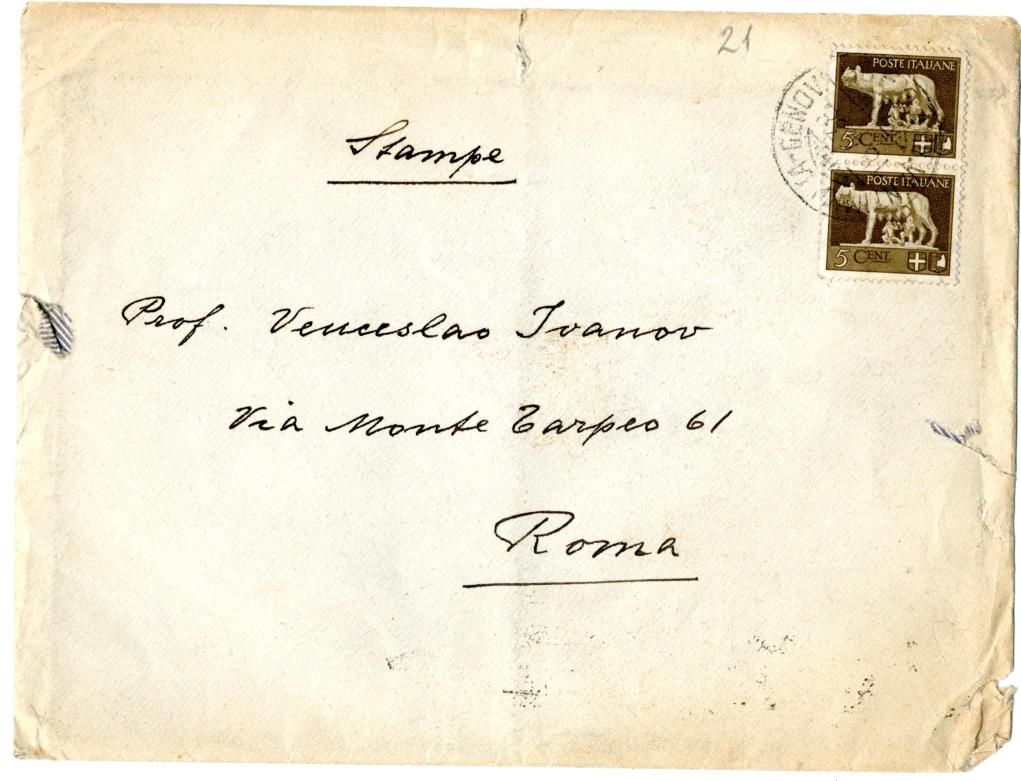 21
POSTE ITALIANE
5 CENT.
POSTE ITALIANE
5 CENT.
Stampe
Prof. Venceslao Ivanov
Via Monte Tarpeo 61
Roma